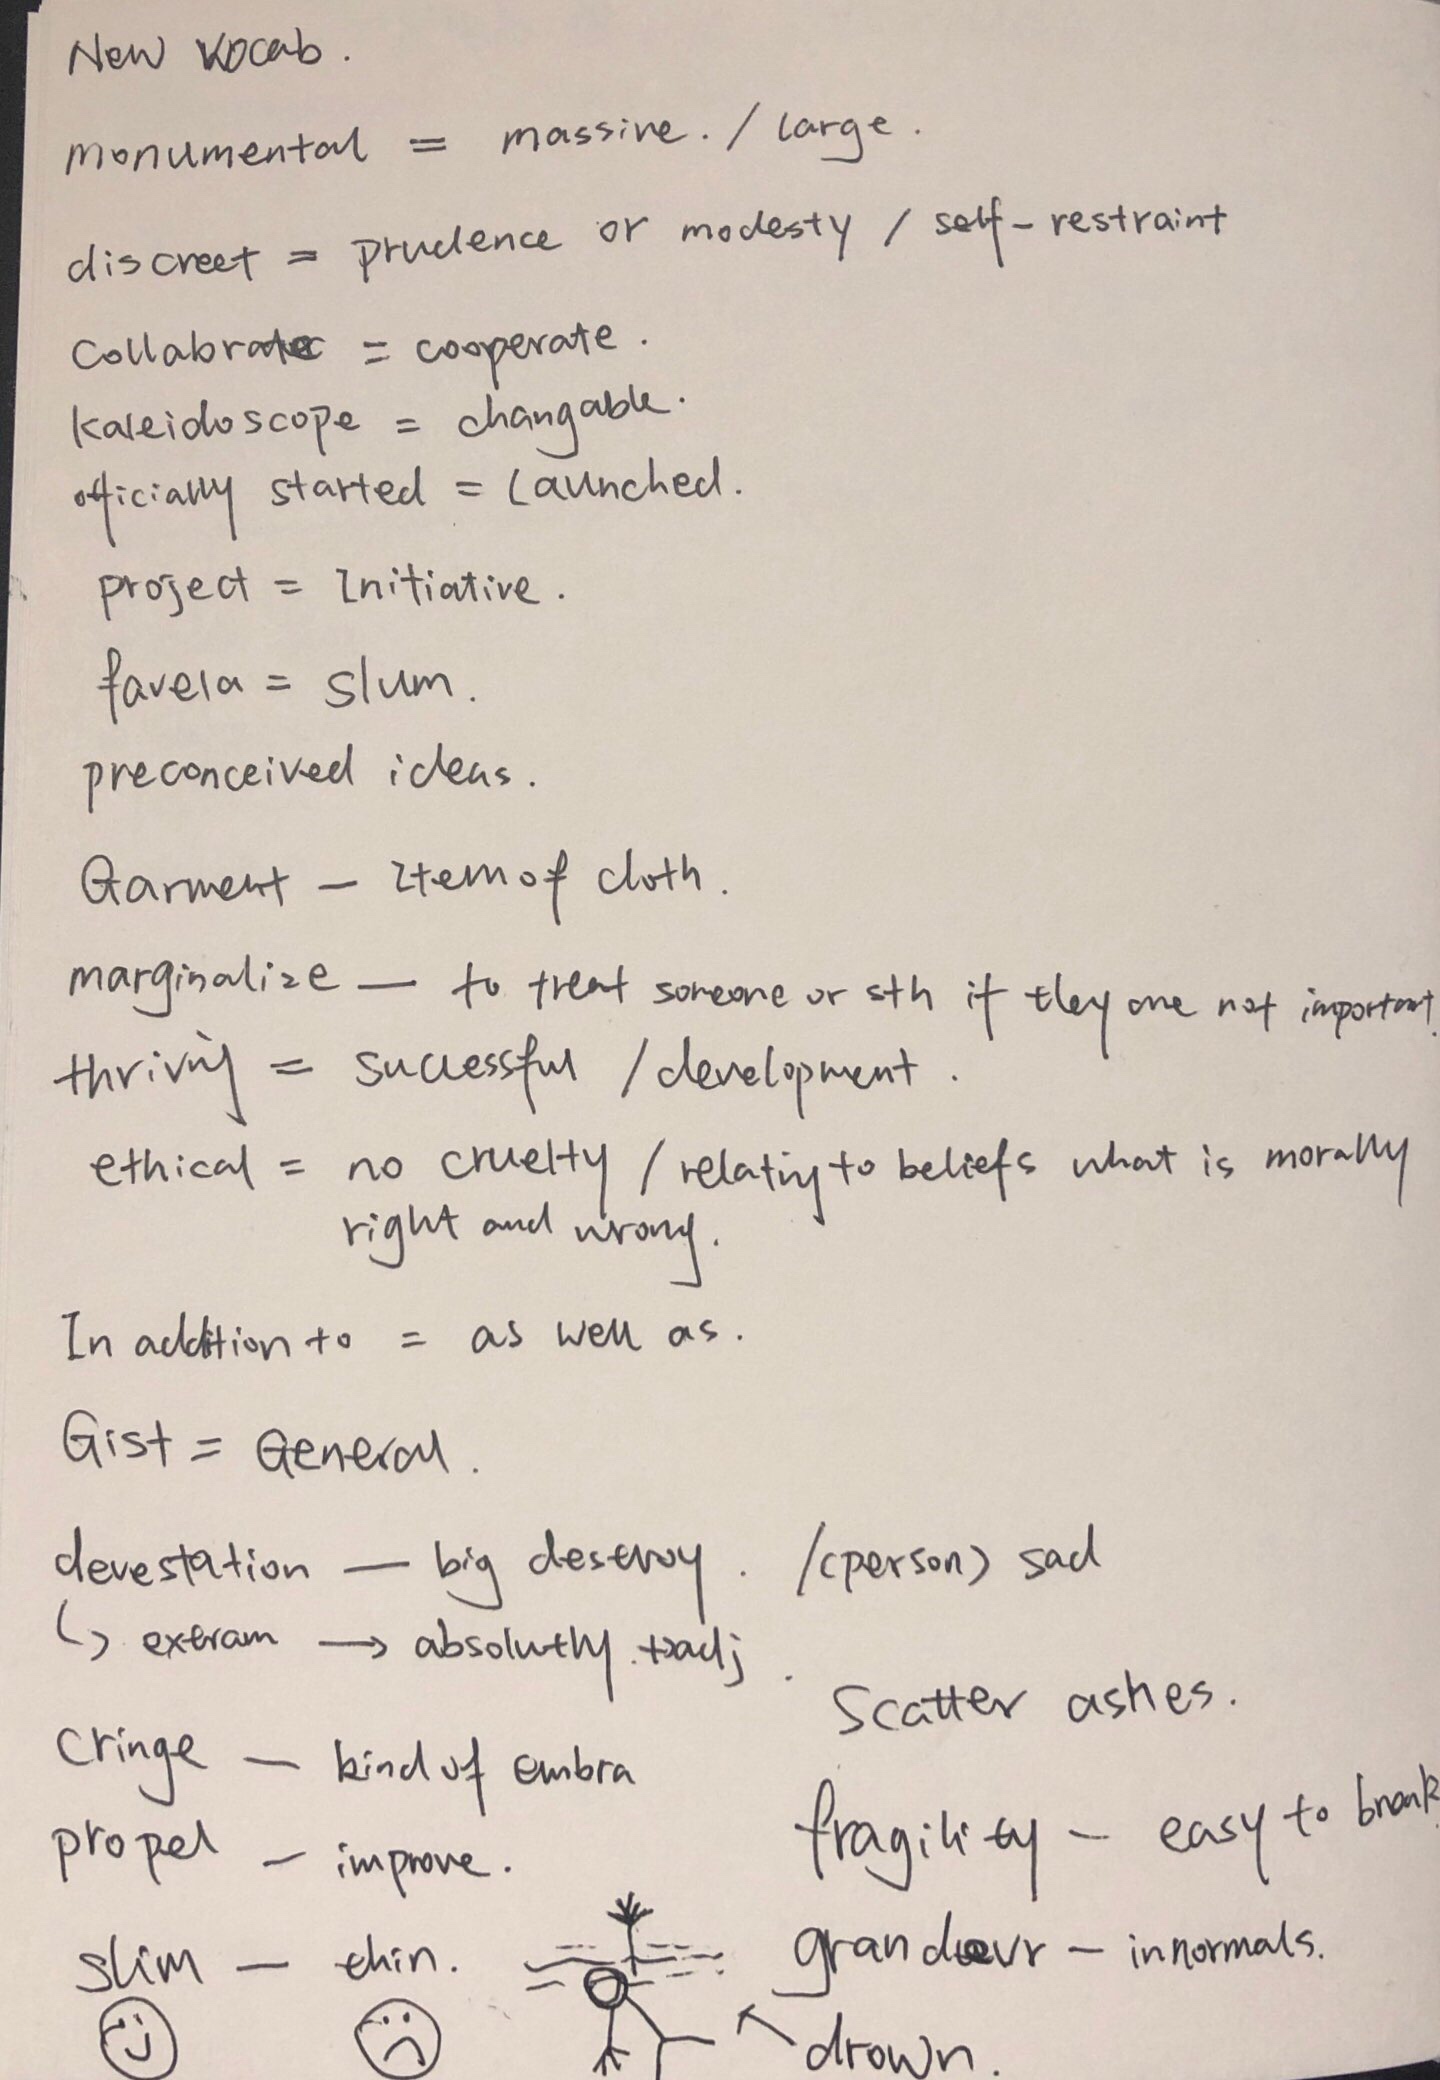 New Vocab.
monumental = massive. / large.
discreet = prudence or modesty / self-restraint
Collabrate = cooperate.
kaleidoscope = changable.
officially started = Launched.
project = Initiative.
favela = slum.
preconceived ideas.
Garment — Item of cloth.
marginalize — to treat someone or sth if they are not important.
thriving = successful / development.
ethical = no cruelty / relating to beliefs what is morally
right and wrong.
In addition to = as well as.
Gist = General.
devestation — big destroy. / (person) sad
↳ extram → absolutly + adj.
Scatter ashes.
Cringe — kind of embra
propel — improve.
fragility — easy to break.
slim — thin.
grandeur — innormals.
drown.